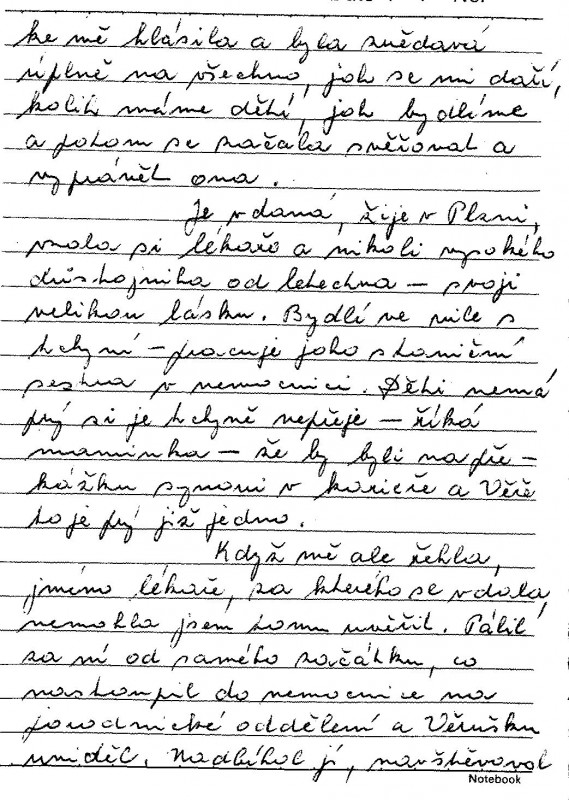 ke mě hlásila a byla zvědavá
úplně na všechno, jak se mi daří,
kolik máme dětí, jak bydlíme
a potom se začala svěřovat a
vyprávět ona.
Je vdaná, žije v Plzni,
vzala si lékaře a nikoli vysokého
důstojníka od letectva – svoji
velikou lásku. Bydlí ve vile s
tchyní – pracuje jako staniční
sestra v nemocnici. Děti nemá
prý si je tchyně nepřeje – říká
maminka – že by byli na pře-
kážku synovi v kariéře a Věře
to je prý již jedno.
Když mě ale řekla,
jméno lékaře, za kterého se vdala,
nemohla jsem tomu uvěřit. Pálil
za ní od samého začátku, co
nastoupil do nemocnice na
porodnické oddělení a Věrušku
uviděl. Nadbíhal jí, navštěvoval
Notebook